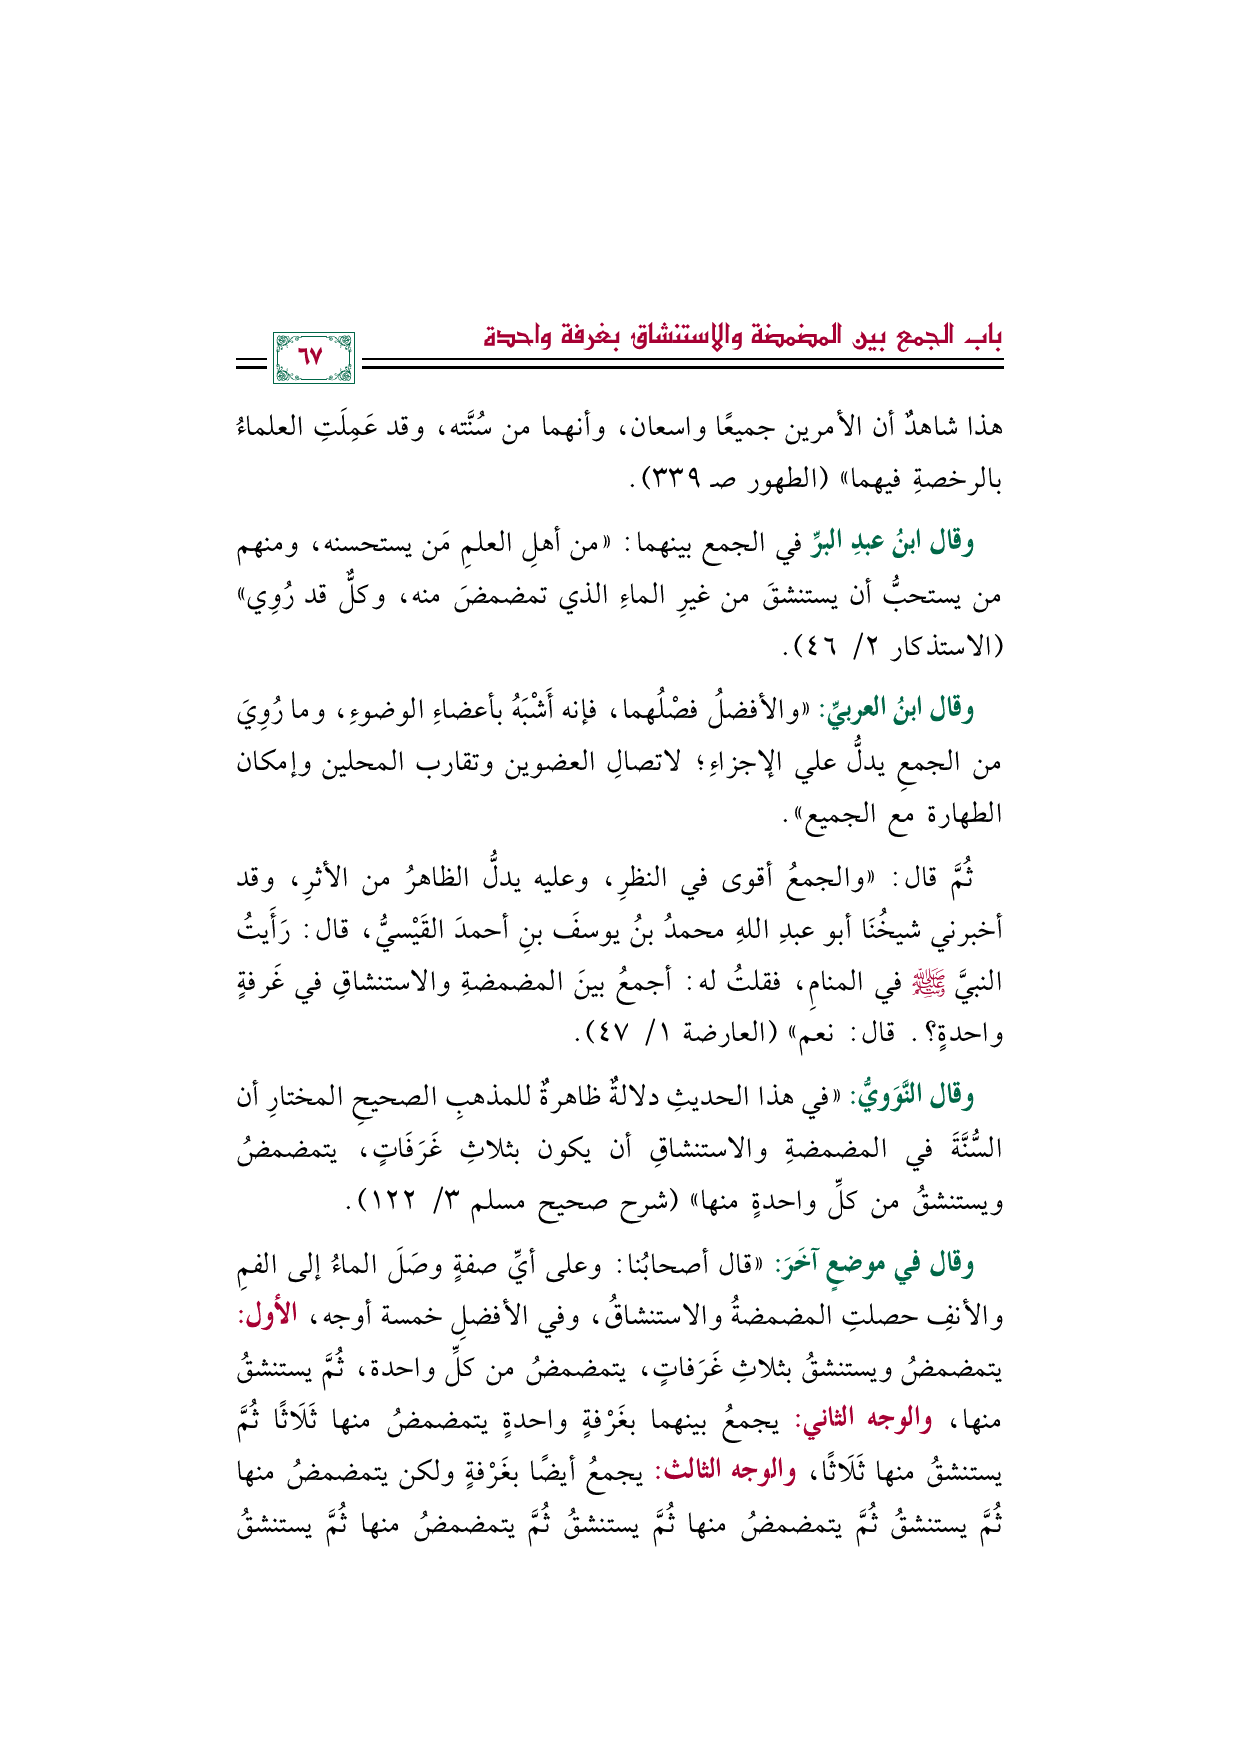 باب الجمع بين المضمضة والاستنشاق بغرفة واحدة
٦٧
هذا شاهدٌ أن الأمرين جميعًا واسعان، وأنهما من سُنَّته، وقد عَمِلَتِ العلماءُ
بالرخصةِ فيهما» (الطهور صـ ٣٣٩).
وقال ابنُ عبدِ البرِّ في الجمع بينهما: «من أهلِ العلمِ مَن يستحسنه، ومنهم
من يستحبُّ أن يستنشقَ من غيرِ الماءِ الذي تمضمضَ منه، وكلٌّ قد رُوِي»
(الاستذكار ٢/ ٤٦).
وقال ابنُ العربيِّ: «والأفضلُ فصْلُهما، فإنه أَشْبَهُ بأعضاءِ الوضوءِ، وما رُوِيَ
من الجمعِ يدلُّ علي الإجزاءِ؛ لاتصالِ العضوين وتقارب المحلين وإمكان
الطهارة مع الجميع».
ثُمَّ قال: «والجمعُ أقوى في النظرِ، وعليه يدلُّ الظاهرُ من الأثرِ، وقد
أخبرني شيخُنَا أبو عبدِ اللهِ محمدُ بنُ يوسفَ بنِ أحمدَ القَيْسيُّ، قال: رَأَيتُ
النبيَّ ﷺ في المنامِ، فقلتُ له: أجمعُ بينَ المضمضةِ والاستنشاقِ في غَرفةٍ
واحدةٍ؟. قال: نعم» (العارضة ١/ ٤٧).
وقال النَّوَويُّ: «في هذا الحديثِ دلالةٌ ظاهرةٌ للمذهبِ الصحيحِ المختارِ أن
السُّنَّةَ في المضمضةِ والاستنشاقِ أن يكون بثلاثِ غَرَفَاتٍ، يتمضمضُ
ويستنشقُ من كلِّ واحدةٍ منها» (شرح صحيح مسلم ٣/ ١٢٢).
وقال في موضعٍ آخَرَ: «قال أصحابُنا: وعلى أيِّ صفةٍ وصَلَ الماءُ إلى الفمِ
والأنفِ حصلتِ المضمضةُ والاستنشاقُ، وفي الأفضلِ خمسة أوجه، الأول:
يتمضمضُ ويستنشقُ بثلاثِ غَرَفاتٍ، يتمضمضُ من كلِّ واحدة، ثُمَّ يستنشقُ
منها، والوجه الثاني: يجمعُ بينهما بغَرْفةٍ واحدةٍ يتمضمضُ منها ثَلَاثًا ثُمَّ
يستنشقُ منها ثَلَاثًا، والوجه الثالث: يجمعُ أيضًا بغَرْفةٍ ولكن يتمضمضُ منها
ثُمَّ يستنشقُ ثُمَّ يتمضمضُ منها ثُمَّ يستنشقُ ثُمَّ يتمضمضُ منها ثُمَّ يستنشقُ